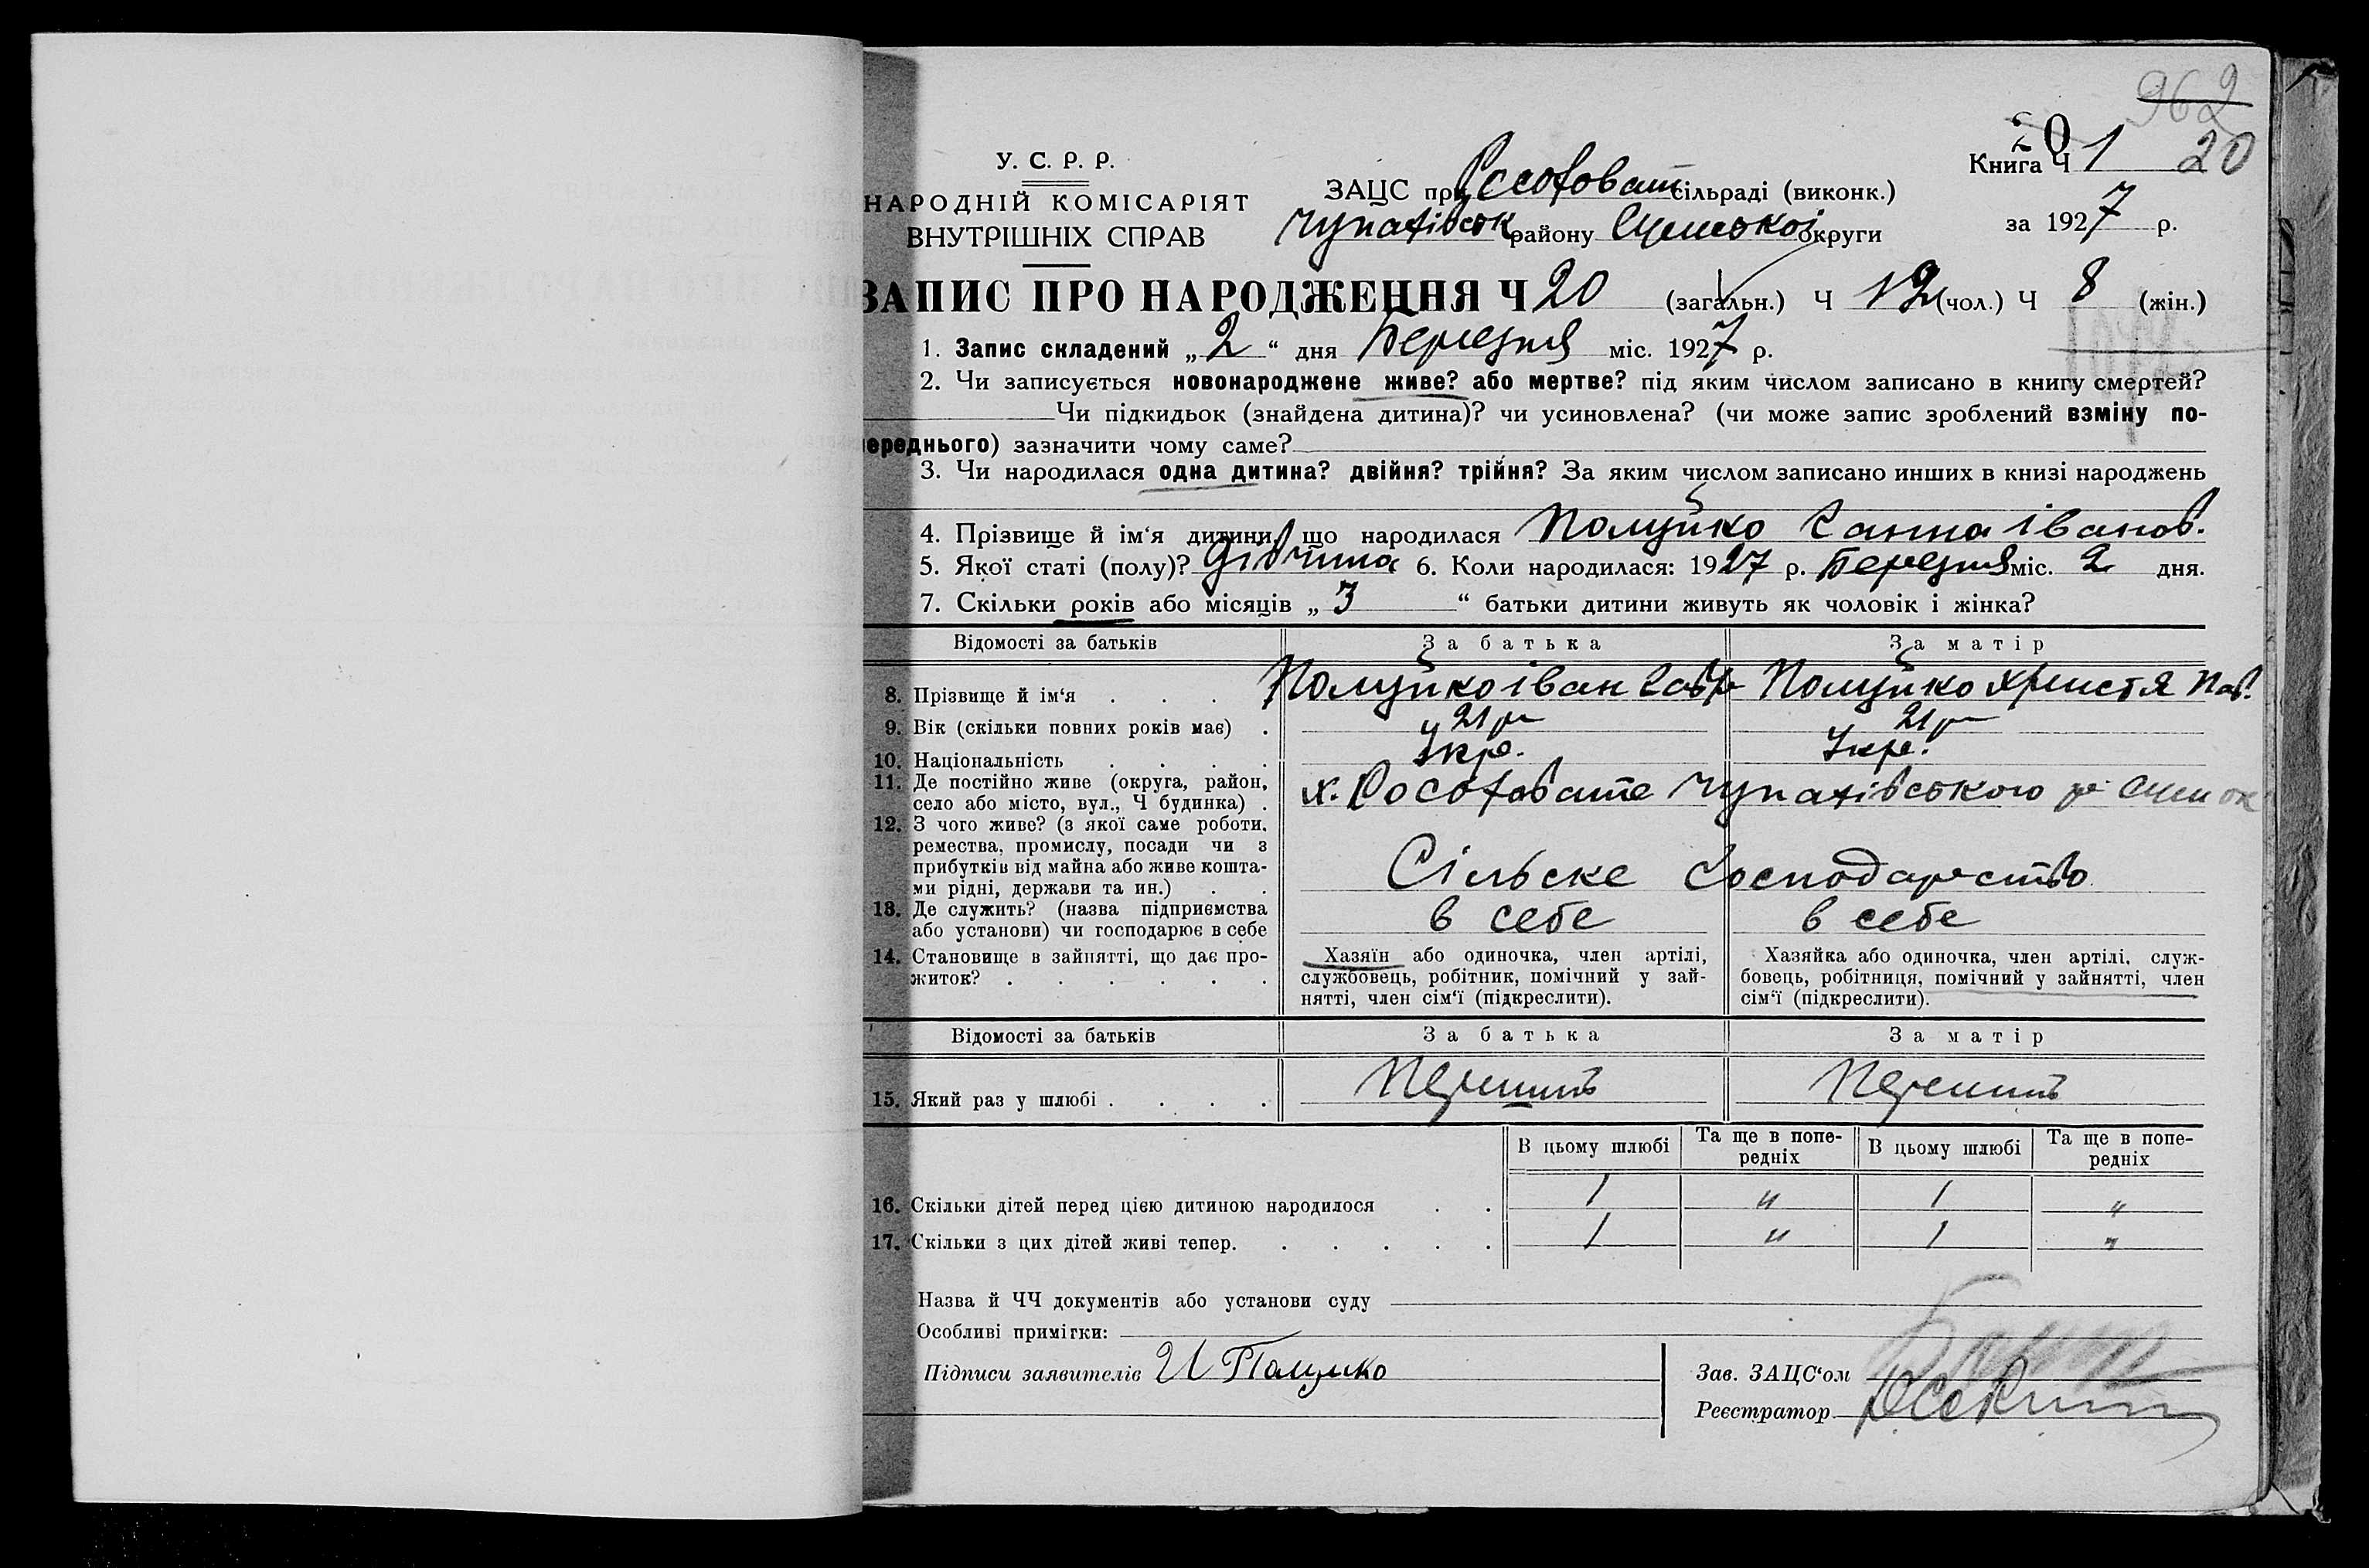 962
20
У. С. Р. Р.
Книга Ч 1 20
НАРОДНІЙ КОМІСАРІЯТ
ВНУТРІШНІХ СПРАВ
ЗАЦС при Рясофоват сільраді (виконк.)
Чупахівськ району Сумської округи
за 1927 р.
ЗАПИС ПРО НАРОДЖЕННЯ Ч 20 (загальн.) Ч 12 (чол.) Ч 8 (жін.)
1. Запис складений „ 2 “ дня Березня міс. 1927 р.
2. Чи записується новонароджене живе? або мертве? під яким числом записано в книгу смертей?
Чи підкидьок (знайдена дитина)? чи усиновлена? (чи може запис зроблений взміну по-
переднього) зазначити чому саме?
3. Чи народилася одна дитина? двійня? трійня? За яким числом записано инших в книзі народжень
4. Прізвище й ім‘я дитини, що народилася Полуйко Ганна Іванов.
5. Якої статі (полу)? дівчина 6. Коли народилася: 1927 р. Березня міс. 2 дня.
7. Скільки років або місяців „ 3 “ батьки дитини живуть як чоловік і жінка?
Відомості за батьків За батька За матір
8. Прізвище й ім‘я . . . Полуйко Іван Гавр Полуйко Христя Пав.
9. Вік (скільки повних років має) . 21 р 21 р
10. Національність . . . . Укр. Укр.
11. Де постійно живе (округа, район,
село або місто, вул., Ч будинка) . х. Рософовате Чупахівського р Сум ок
12. З чого живе? (з якої саме роботи,
ремества, промислу, посади чи з
прибутків від майна або живе кошта-
ми рідні, держави та ин.) . . Сільське Господарство
13. Де служить? (назва підприємства
або установи) чи господарює в себе в себе в себе
14. Становище в зайнятті, що дає про-
житок? . . . . . .
Хазяїн або одиночка, член артілі,
службовець, робітник, помічний у зай-
нятті, член сім‘ї (підкреслити).
Хазяйка або одиночка, член артілі, служ-
бовець, робітниця, помічний у зайнятті, член
сім‘ї (підкреслити).
Відомості за батьків За батька За матір
15. Який раз у шлюбі . . . . Перший Перший
В цьому шлюбі Та ще в попе-
редніх В цьому шлюбі Та ще в попе-
редніх
16. Скільки дітей перед цією дитиною народилося . . 1 „ 1 „
17. Скільки з цих дітей живі тепер. . . . . . 1 „ 1 „
Назва й ЧЧ документів або установи суду
Особливі примітки:
Підписи заявителів И Полуйко
Зав. ЗАЦС‘ом
Реєстратор